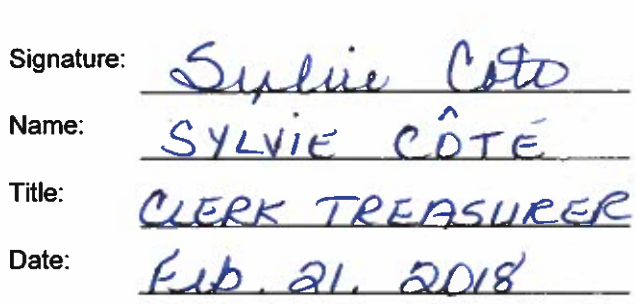 Signature: Sylvie Coté
Name: SYLVIE CÔTÉ
Title: CLERK TREASURER
Date: Feb. 21. 2018